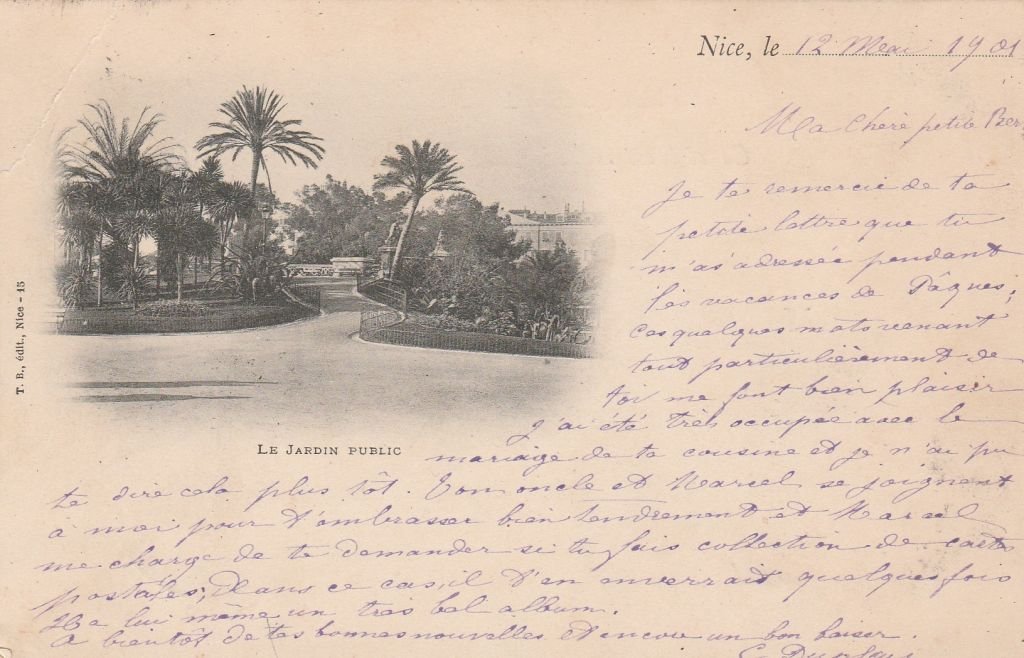 Nice, le 12 Mai 1901
Ma chère petite Ber
Je te remercie de ta
petite lettre que tu
m'as adressée pendant
les vacances de Pâques;
ces quelques mots venant
tout particulièrement de
toi me font bien plaisir
J'ai été très occupée avec le
mariage de ta cousine et je n'ai pu
te dire cela plus tôt. Ton oncle et Marcel se joignent
à moi pour t'embrasser bien tendrement et Marcel
me charge de te demander si tu fais collection de cartes
postales; Dans ce cas, il t'en enverrait quelques fois
Il a lui même un très bel album.
A bientôt de tes bonnes nouvelles et encore un bon baiser.
LE JARDIN PUBLIC
T. B., édit., Nice - 15